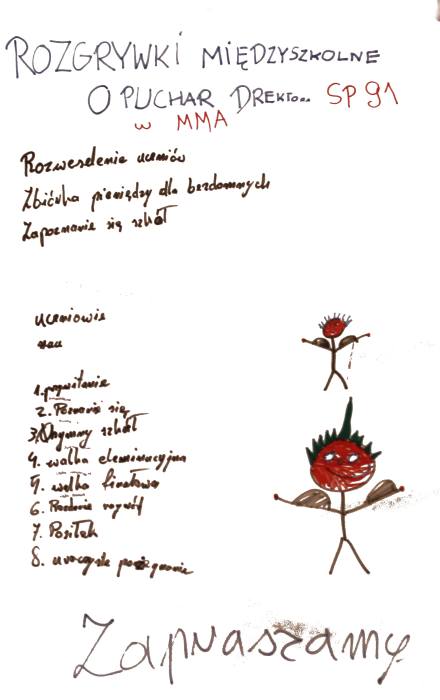 ROZGRYWKI MIĘDZYSZKOLNE
O PUCHAR DREKTO.. SP 91
w MMA
Rozweselenie uczniów
Zbiórka pieniędzy dla bezdomnych
Zapoznanie się szkół
uczniowie
1. przywitanie
2. Poznanie się
3. Hymny szkół
4. walka eleminacyjna
5. walka finałowa
6. nagród
7. Posiłek
8. uroczyste pożegnanie
Zapraszamy